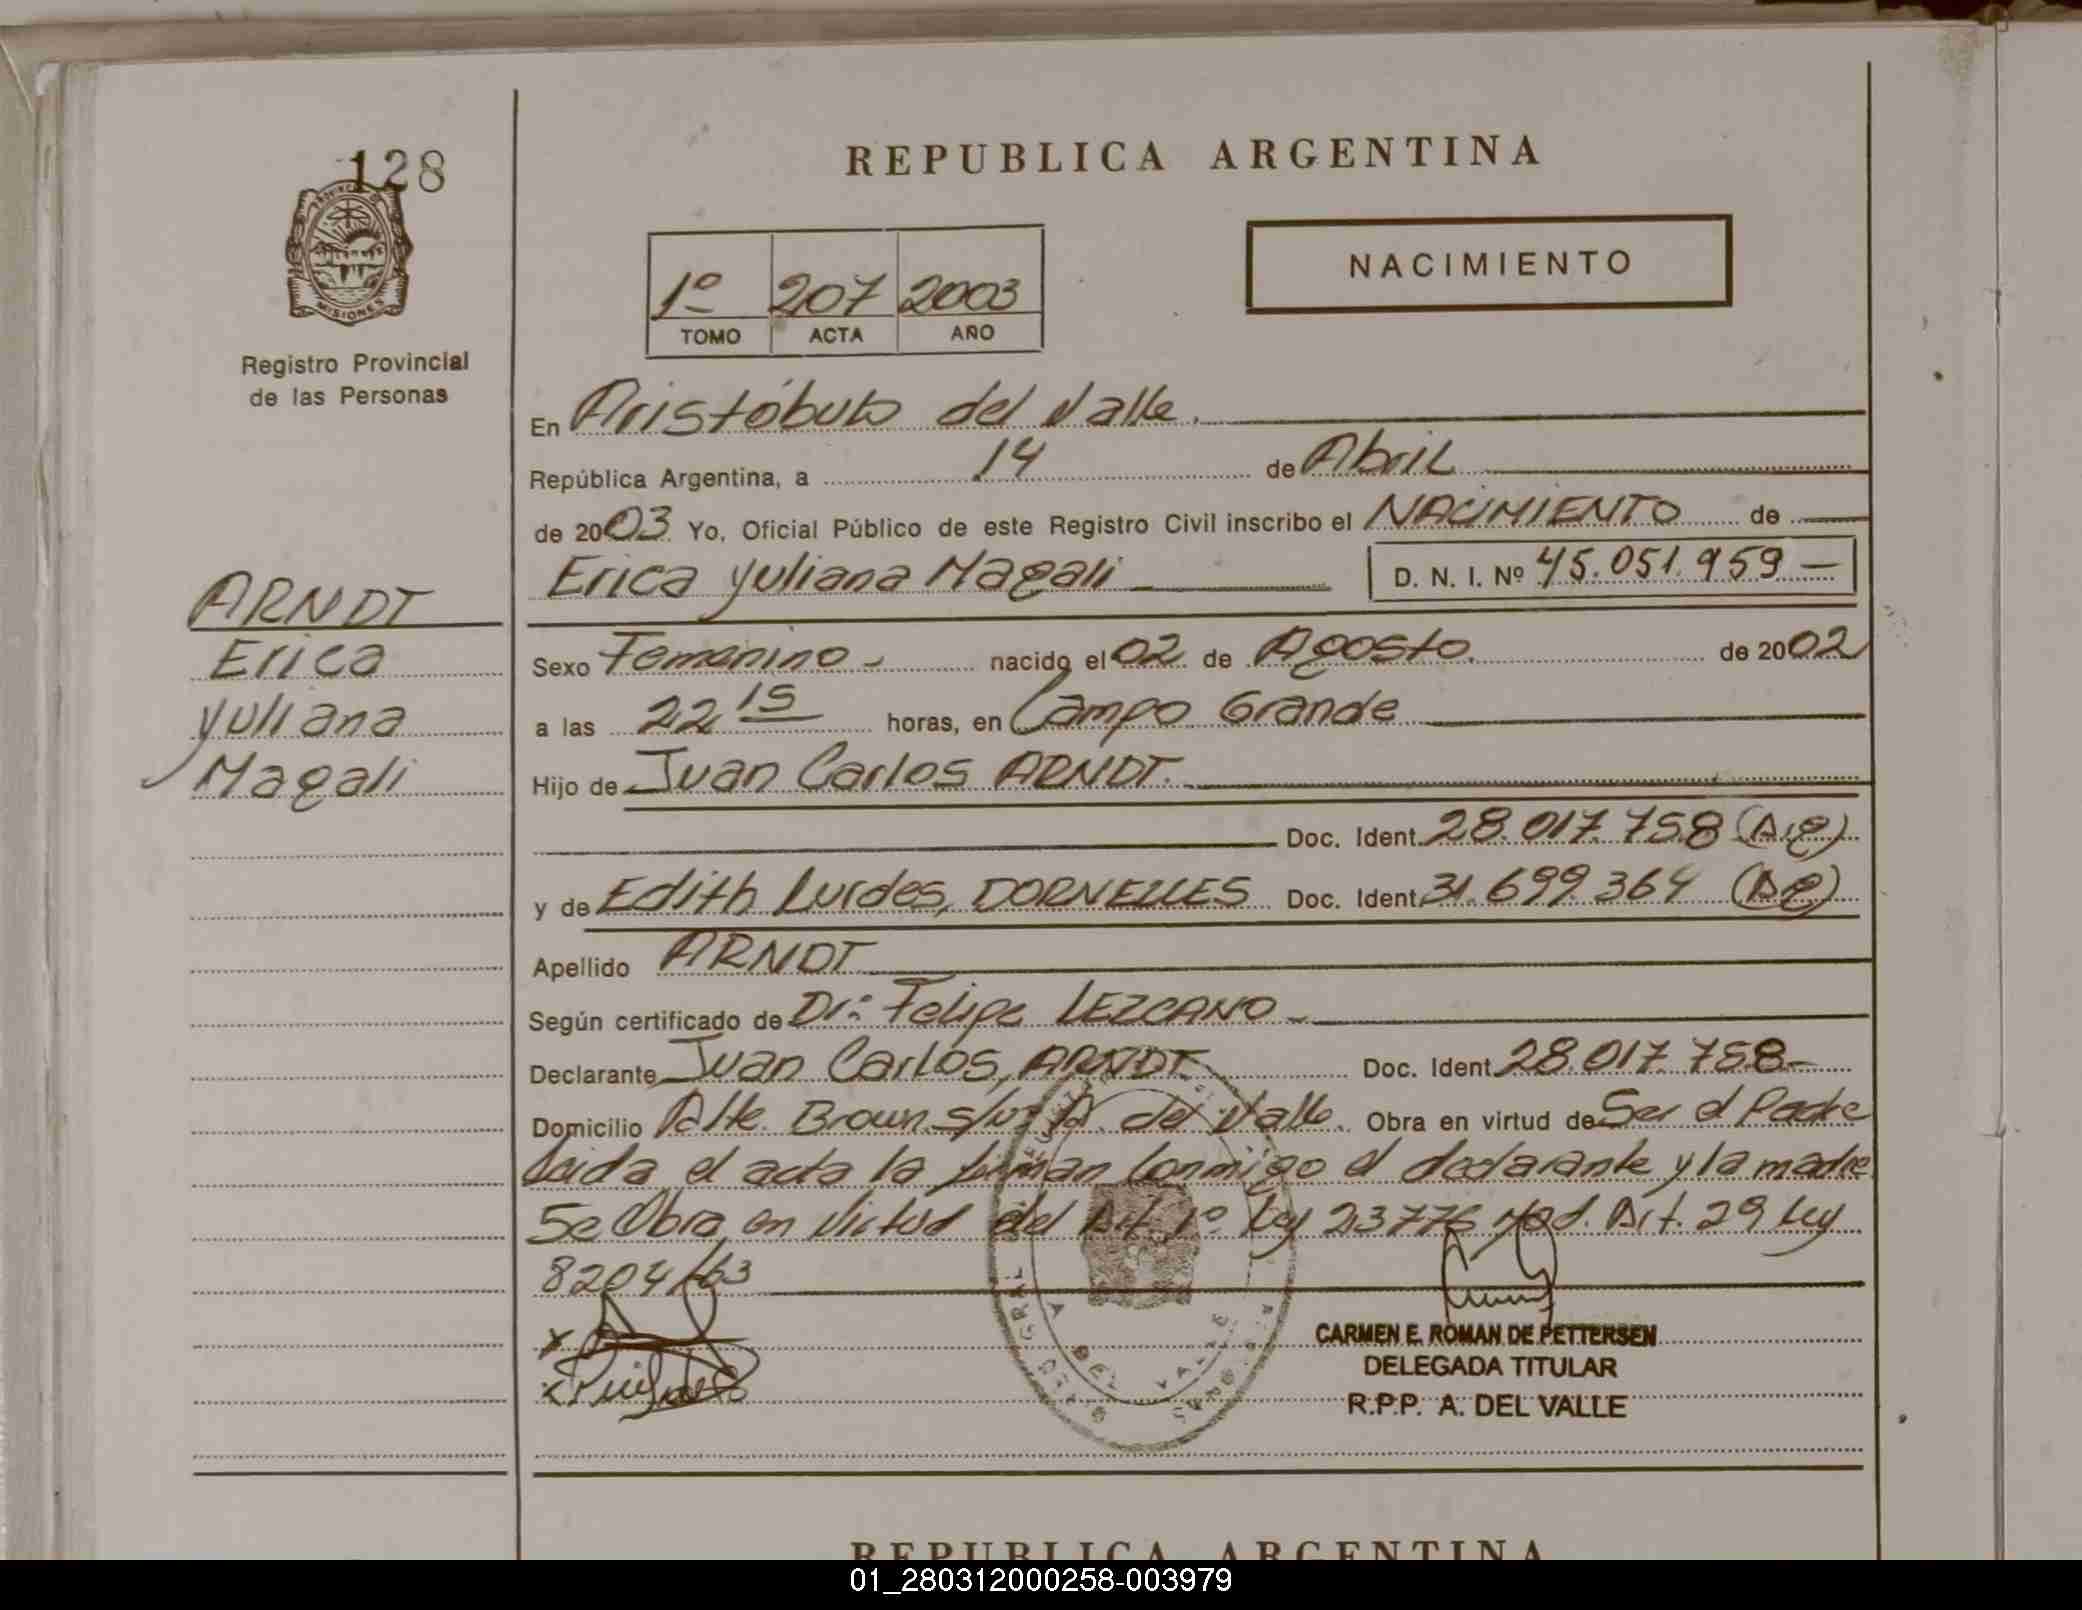 128
REPUBLICA ARGENTINA
PROVINCIA DE
MISIONES
Registro Provincial
de las Personas
NACIMIENTO
1º 207 2003
TOMO ACTA AÑO
En Aristóbulo del Valle.
República Argentina, a 14 de Abril
de 2003 Yo, Oficial Público de este Registro Civil inscribo el NACIMIENTO de
Erica Yuliana Magali D. N. I. Nº 45.051.959 -
ARNDT
Erica
Yuliana
Magali
Sexo Femenino - nacido el 02 de Agosto de 2002
a las 22 15 horas, en Campo Grande
Hijo de Juan Carlos ARNDT.
Doc. Ident. 28.017.758 (Arg)
y de Edith Lurdes, DORNELLES Doc. Ident. 31.699.364 (Ag)
Apellido ARNDT
Según certificado de Dr: Felipe LEZCANO -
Declarante Juan Carlos, ARNDT Doc. Ident 28.017.758-
Domicilio Alte. Brown s/nº A. del Valle. Obra en virtud de Ser el Padre
Leida el acta la firman conmigo el declarante y la madre
Se Obra en Victud del Art. 1º Ley 23776 Mod. Art. 29 Ley
8204/63
CARMEN E. ROMAN DE PETTERSEN
DELEGADA TITULAR
R.P.P. A. DEL VALLE
A. DEL VALLE
REPUBLICA ARGENTINA
01_280312000258-003979